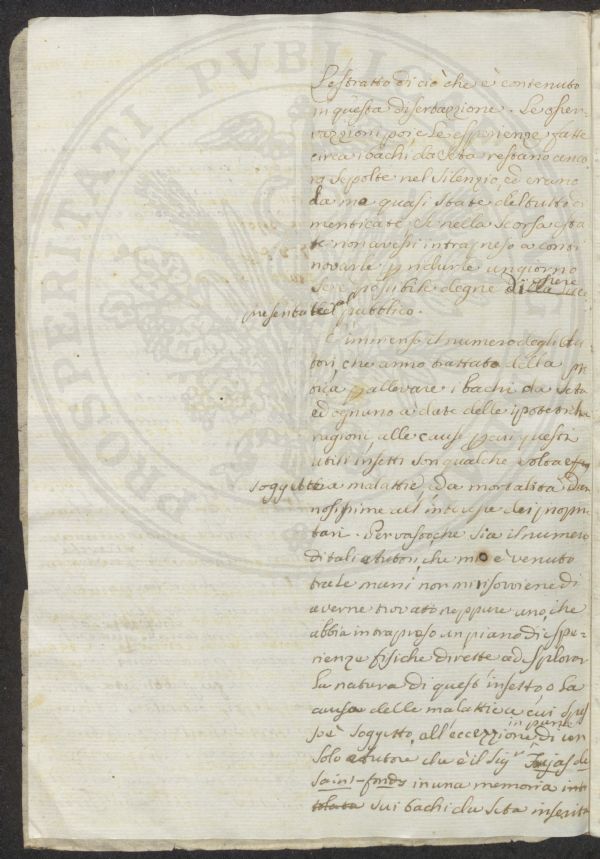 PROSPERITATI PVBLIC
L'estratto di ciò che è contenuto
in questa dissertazione. Le osser-
vazioni poi e le esperienze fatte
circa i bachi da seta restano anco
ra sepolte nel silenzio, ed erano
da me quasi state del tutto di
menticate, se nella scorsa esta
te non avessi intrapreso a conti
novarle p ridurle un giorno
se è possibile degne di essere
presentate al pubblico.
È immenso il numero degli Au-
tori che anno trattato della
p allevare i bachi da seta
ed ognuno a date delle ipotetiche
ragioni alle cause p cui questi
utili insetti son qualche volta
soggetti a malattie, ed a mortalità dan
nosissime all'interesse dei proprie
tari. Per vasto che sia il numero
di tali autori, che mi è venuto
tra le mani, non mi risovviene di
averne trovato neppure uno, che
abbia intrapreso un piano di espe-
rienze fisiche dirette ad esplorar
la natura di quest'insetto, o la
causa delle malattie a cui spes
so è soggetto, all'eccezzione in parte di un
solo autore che è il Sig.r Faujas de
Saint-fonds in una memoria
sui bachi da seta inserita